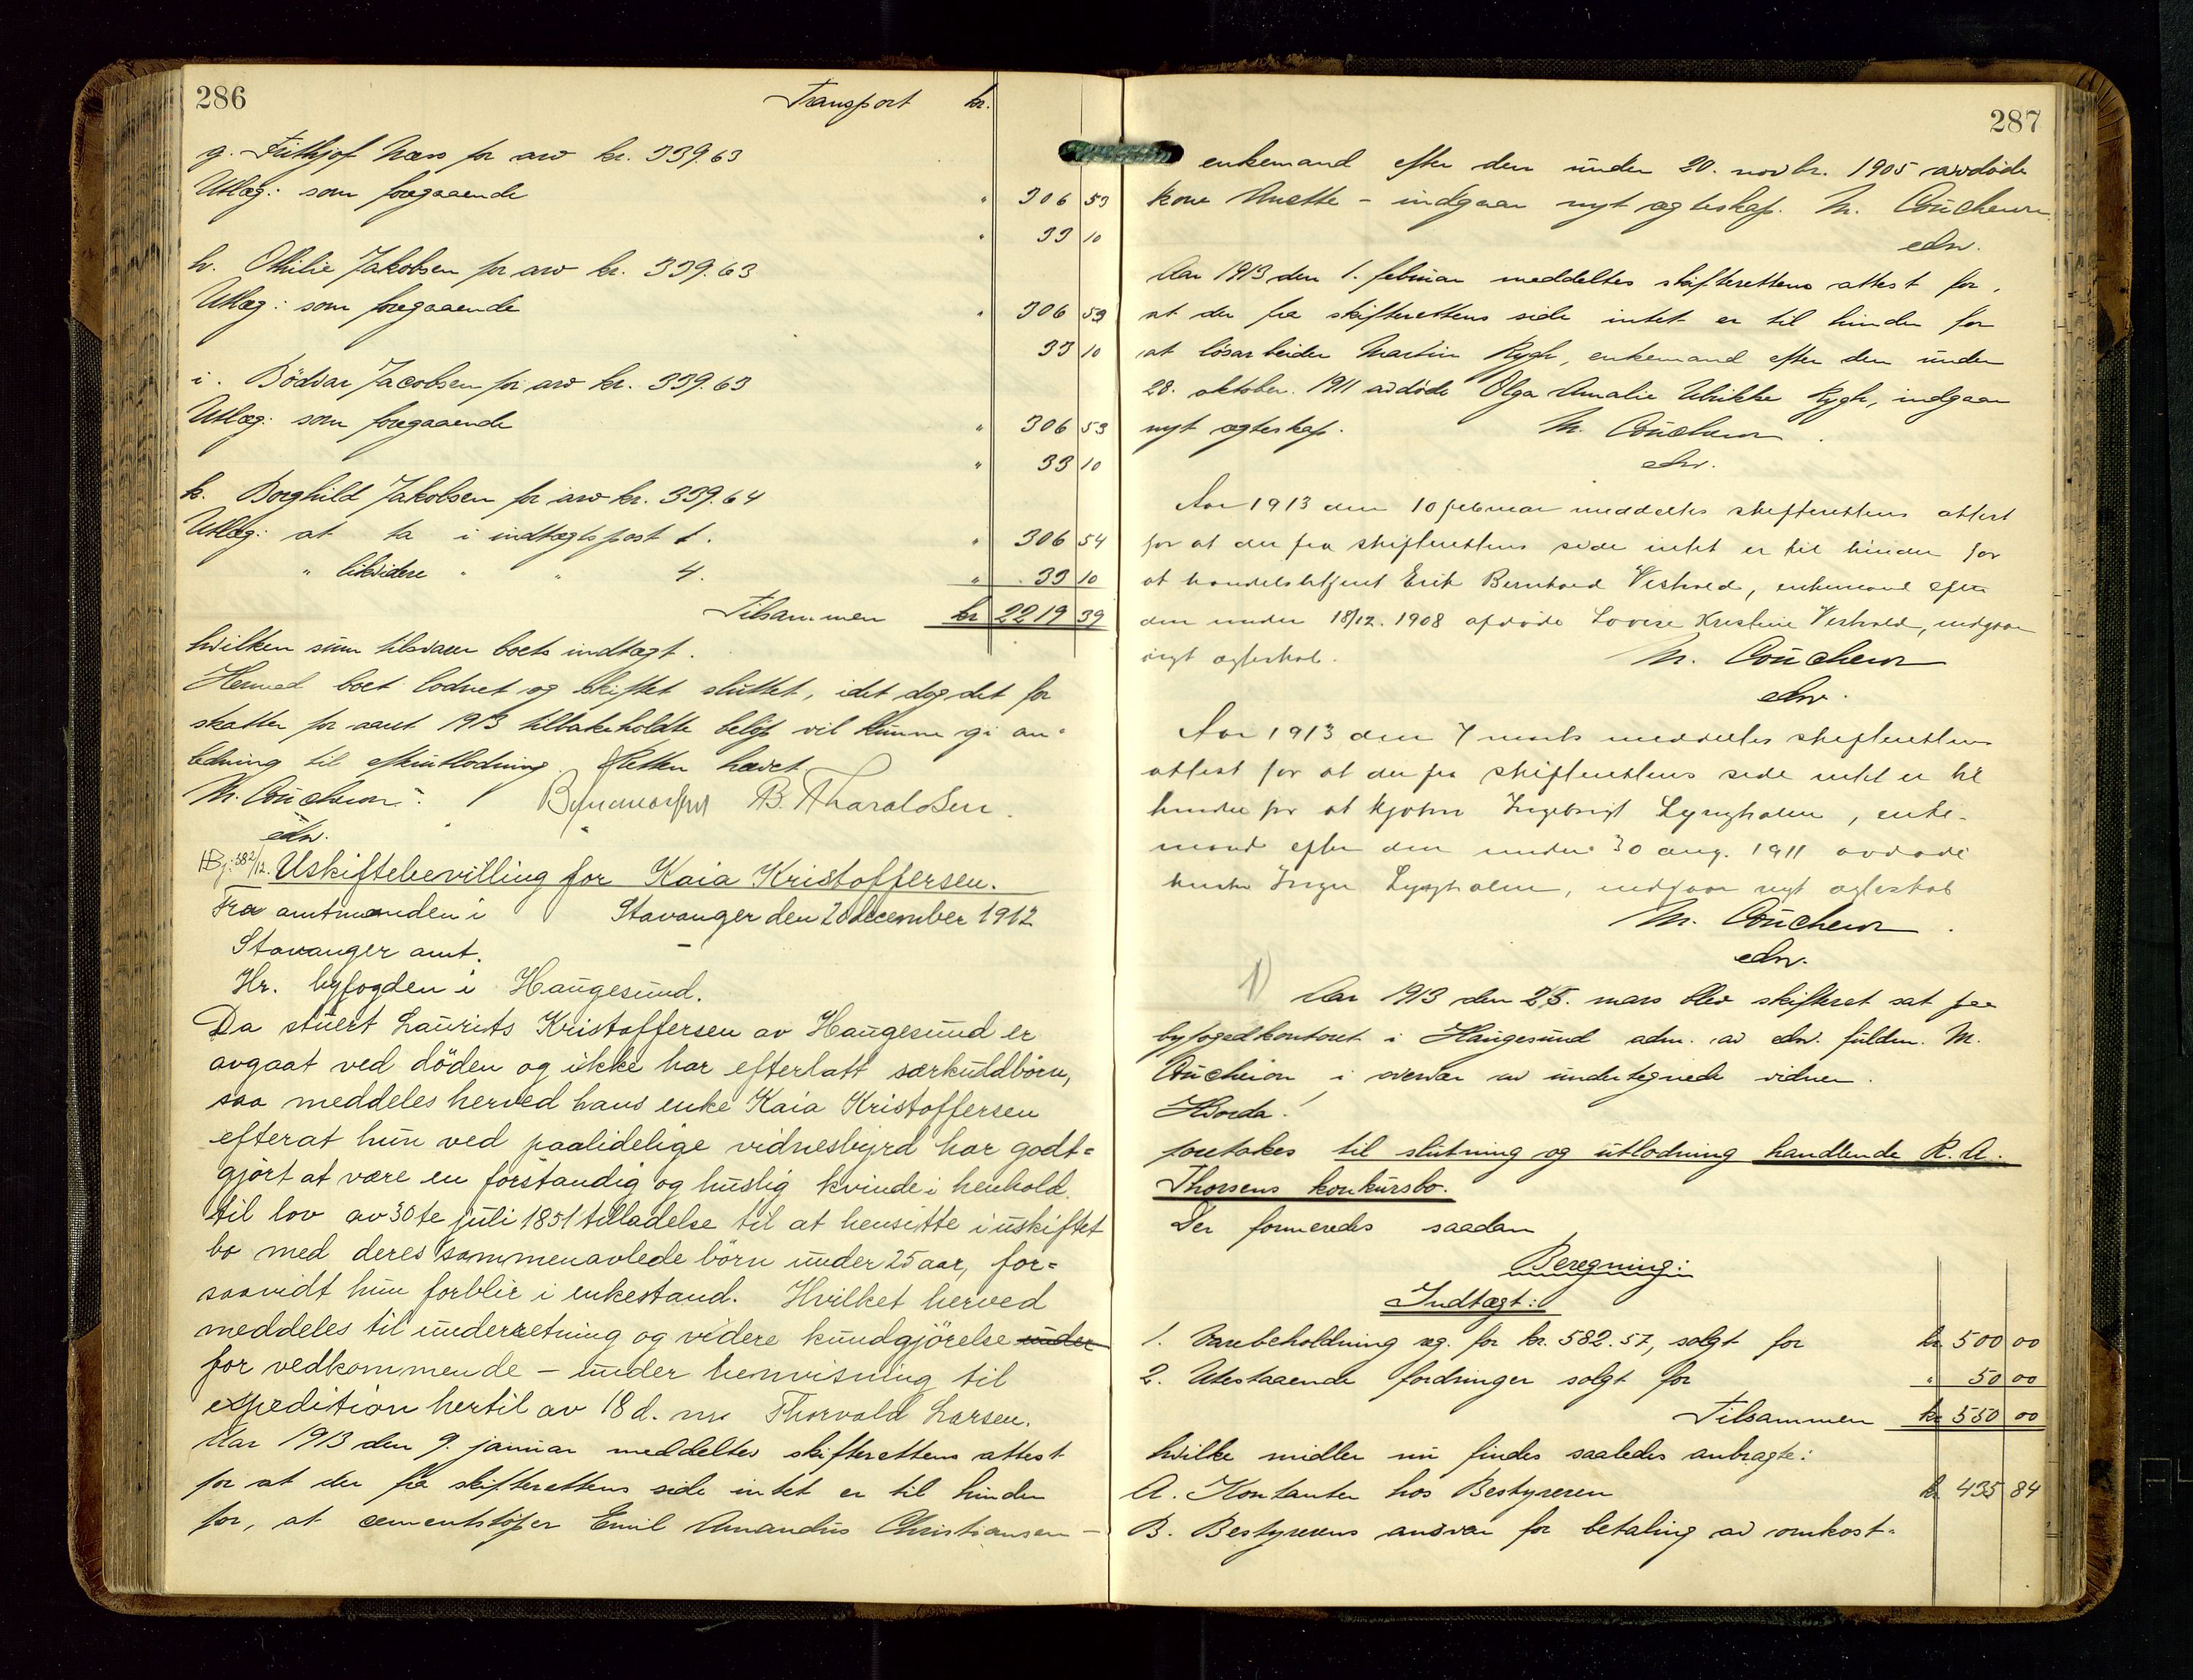 286
Transport kr.
g. Frithjof Næss for arv kr. 339.63
Utlæg: som foregaaende " 306 53
" 33 10
h. Othilie Jakobsen for arv kr. 339.63
Utlæg: som foregaaende " 306 53
33 10
i. Bödvar Jacobsen for arv kr. 339.63
Utlæg: som foregaaende " 306 53
" 33 10
k. Borghild Jakobsen for arv kr. 339.64
Utlæg: at ta i indtægtspost 1. " 306 54
" likvidere " " 4. " 33 10
Tilsammen kr 2219 39
hvilken sum tilsvarer boets indtægt.
Hermed boet lodnet og skiftet sluttet, idet dog det for
skatten for aaret 1913 tilbakeholdte beløp vil kunne gi an-
ledning til efterutlodning. Retten hævet
M. Coucheron. B. Tharaldsen.
edsv.
Bj: 382/12. Uskiftebevilling for Kaia Kristoffersen.
Fra amtmanden i Stavanger den 20 december 1912
Stavanger amt.
Hr. byfogden i Haugesund.
Da stuert Laurits Kristoffersen av Haugesund er
avgaat ved döden og ikke har efterlatt særkuldbörn,
saa meddeles herved hans enke Kaia Kristoffersen
efterat hun ved paalidelige vidnesbyrd har godt-
gjört at være en forstandig og huslig kvinde i henhold
til lov av 30te juli 1851 tilladelse til at hensitte i uskiftet
bo med deres sammenavlede börn under 25 aar, for-
saavidt hun forblir i enkestand. Hvilket herved
meddeles til underretning og videre kundgjörelse under
for vedkommende – under henvisning til
expedition hertil av 18 d. m. Thorvald Larsen.
Aar 1913 den 9. januar meddeltes skifterettens attest
for at der fra skifterettens side intet er til hinder
for, at cementstöper Emil Amandus Christiansen –
287
enkemand efter den under 20. novbr. 1905 avdöde
kone Anette – indgaar nyt ægteskap. M. Coucheron
edsv.
Aar 1913 den 1. februar meddeltes skifterettens attest for,
at der fra skifterettens side intet er til hinder for
at lösarbeider Martin Rygh, enkemand efter den under
28. oktober 1911 avdöde Olga Amalie Ulrikke Rygh, indgaar
nyt ægteskap. M. Coucheron
edsv.
Aar 1913 den 10 februar meddeltes skifterettens attest
for at der fra skifterettens side intet er til hinder for
at handelsbetjent Erik Bernhard Vestvold, enkemand efter
den under 18/12. 1908 afdöde Lovise Kristine Vestvold, indgaar
nyt ægteskab. M. Coucheron
edsv.
Aar 1913 den 7 marts meddeltes skifterettens
attest for at der fra skifterettens side intet er til
hinder for at Ingebrigt Lyngholm, enke-
mand efter den under 30 aug. 1911 avdöde
hustru Inger Lyngholm, indgaar nyt ægteskab
M. Coucheron
edsv.
1) Aar 1913 den 25. mars blev skifteret sat paa
byfogedkontoret i Haugesund adm. av edsv. fuldm. M.
Coucheron i overvær av undertegnede vidner.
Hvorda!
foretokes til slutning og utlodning handlende R. A.
Thorsens konkursbo.
Der formeredes saadan
Beregning:
Indtægt:
1. Varebeholdning reg. for kr. 582.57, solgt for kr. 500 00
2. Utestaaende fordringer solgt for " 50 00
Tilsammen kr. 550 00
hvilke midler nu findes saaledes anbragte:
A. Kontanter hos Bestyreren kr. 435 84
B. Bestyrerens ansvar for betaling av omkost-